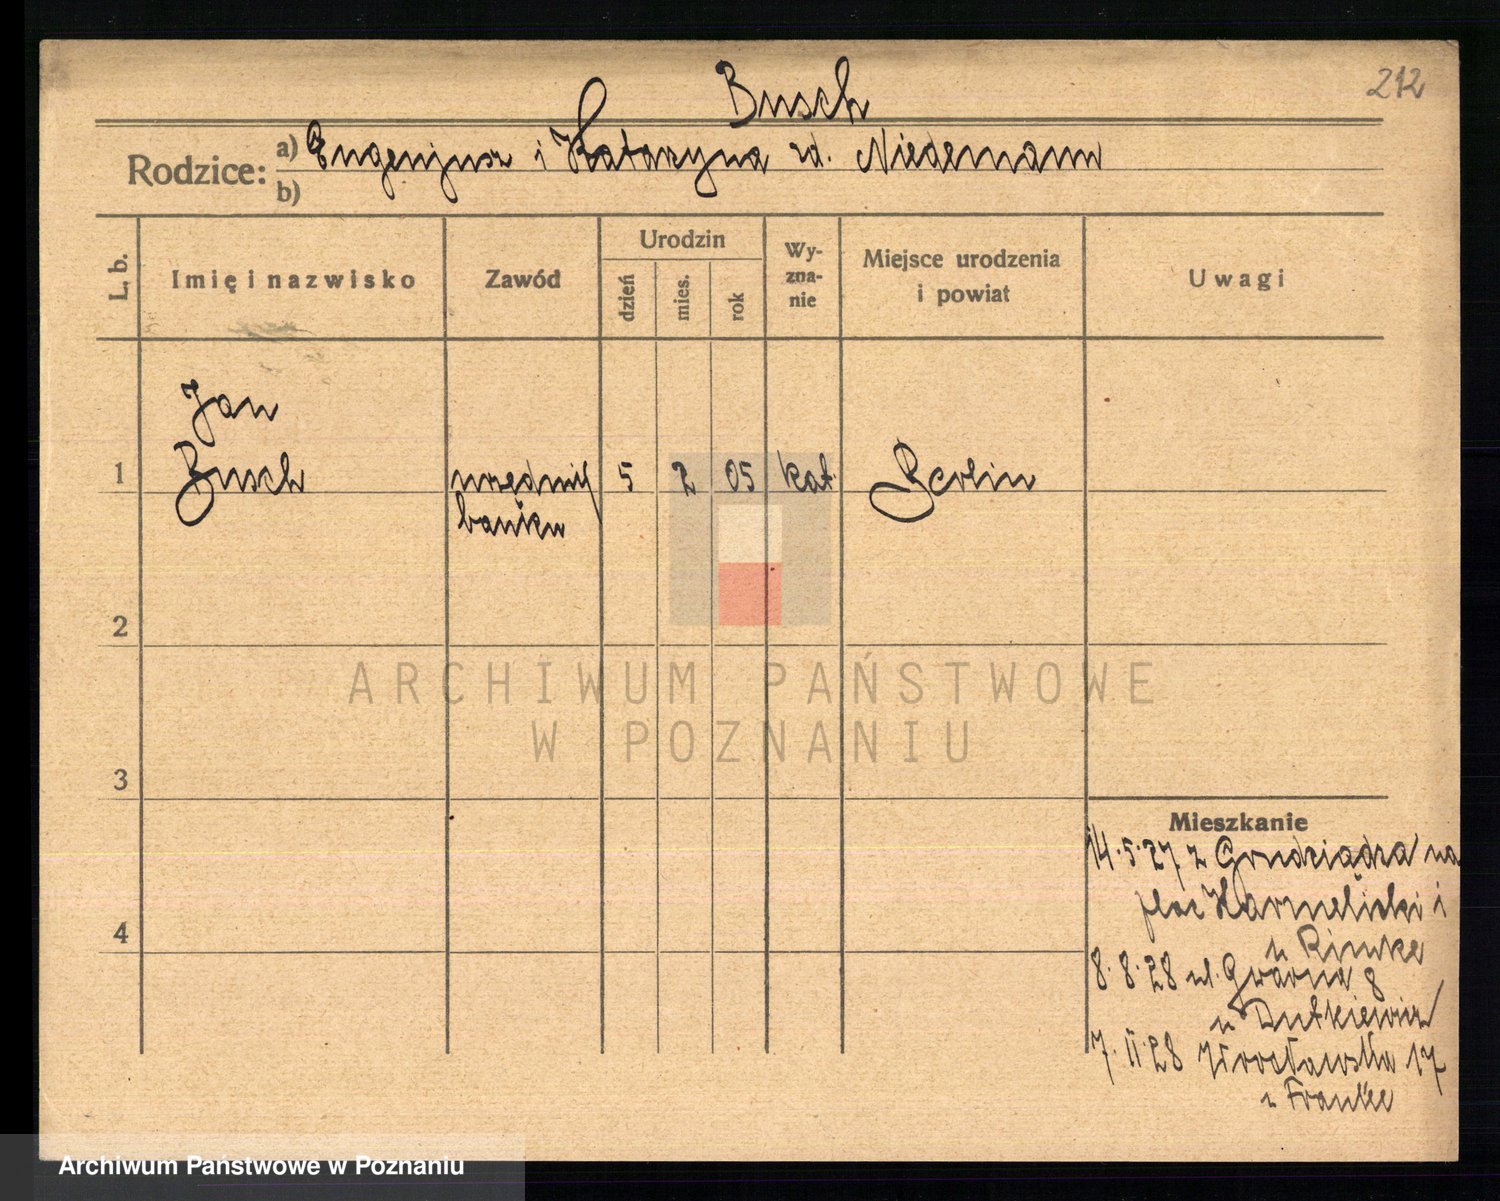 212
Busch
Rodzice: a) Eugenjusz i Katarzyna zd. Niedemann
b)
L. b.
Imię i nazwisko
Zawód
Urodzin
dzień
mies.
rok
Wy-
zna-
nie
Miejsce urodzenia
i powiat
Uwagi
Jan
1 Busch urzędnik 5 2 05 kat. Berlin
banku
2
3
4
Mieszkanie
14.5.27 z Grudziądza na
plac Karmelicki 1
u Rimke
8.8.28 ul. Gwarna 8
u Dutkiewicz
7.11.28 Wrocławska 17
u Franke
ARCHIWUM PAŃSTWOWE
W POZNANIU
Archiwum Państwowe w Poznaniu